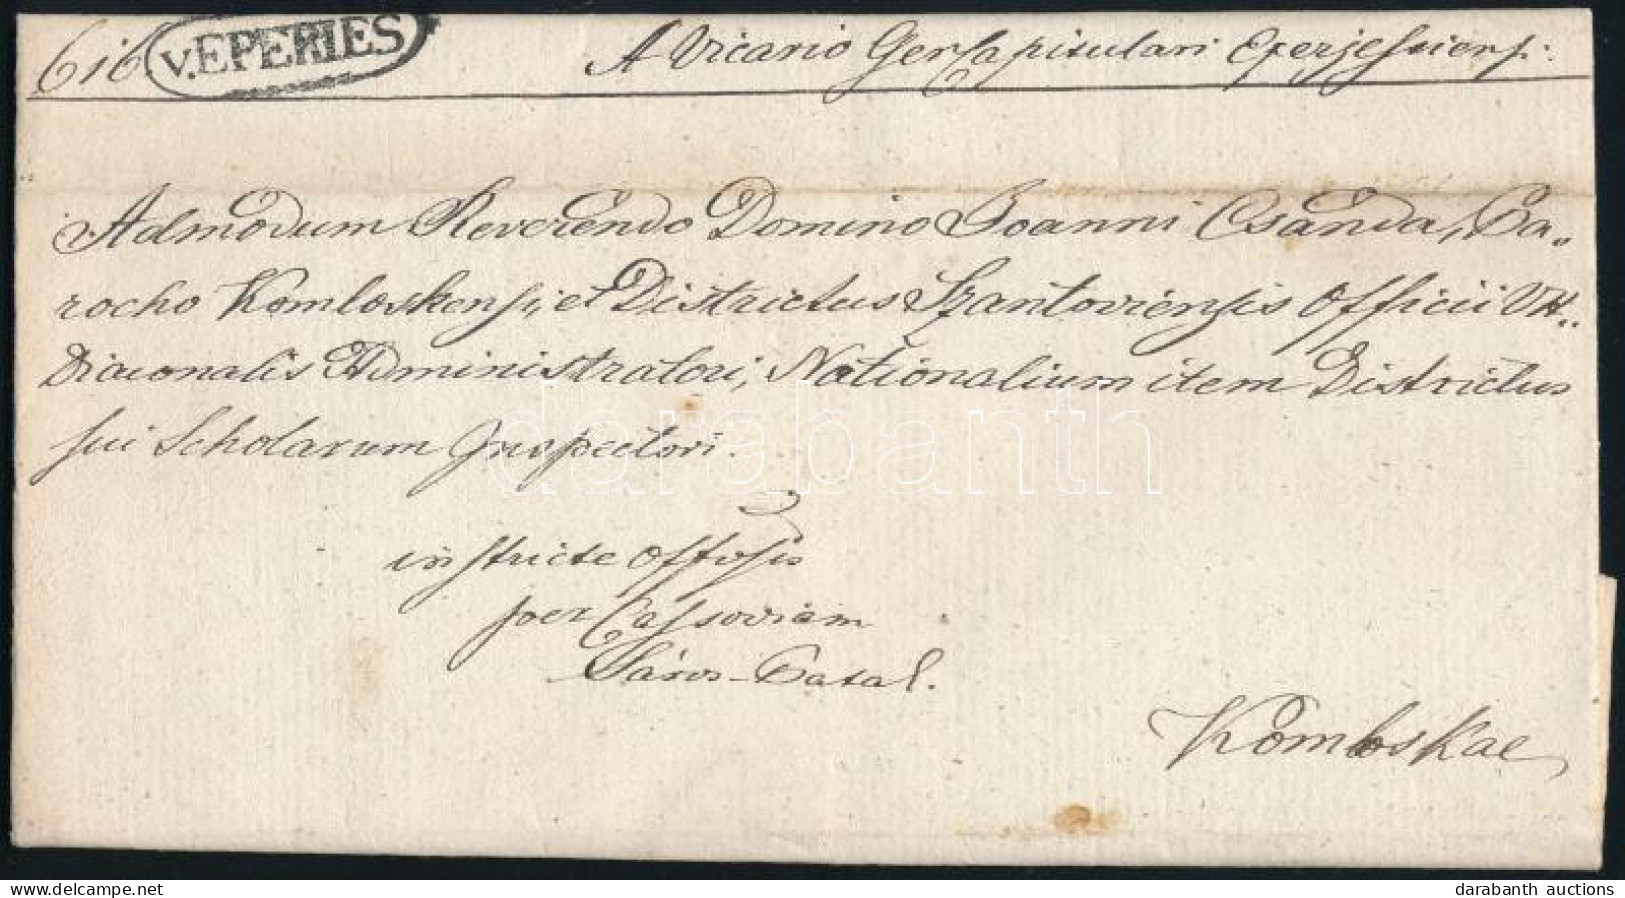 616 v. EPERIES A Vicario Gerl Capitulari Eperjessiensi:
Admodum Reverendo Domino Joanni Csanda, Pa„
rocho Komloskensi, et Districtus Szantoviensis Officii VA„
Diaconalis Administratori, Nationalium item Districtus
sui Scholarum Inspectori.
in stricte Offosis
per Cassoviam
Sáros-Patak.
Komloskae
darabanth
darabanth auctions